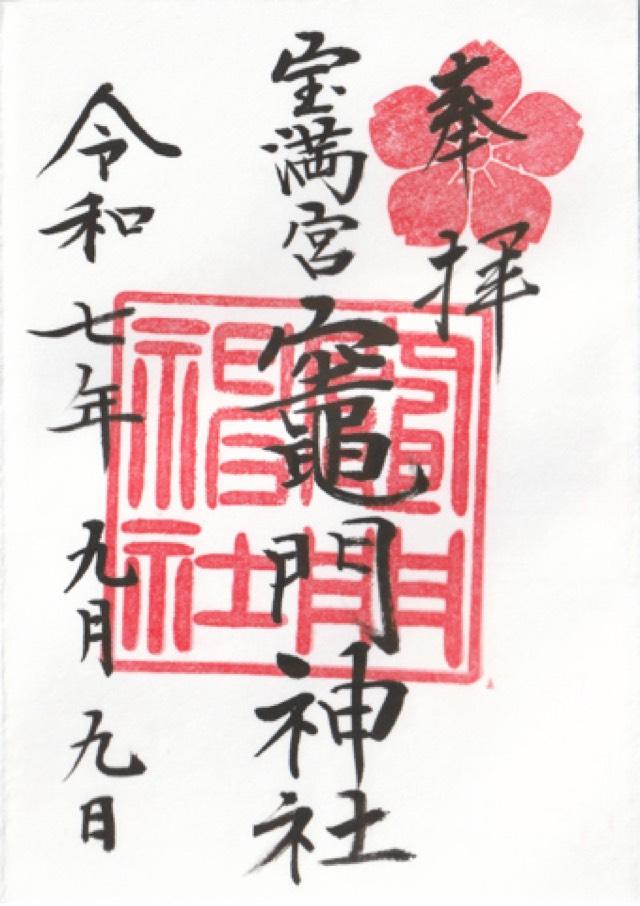 奉拝
宝満宮
竈門神社
竈門
神社
令和七年九月九日